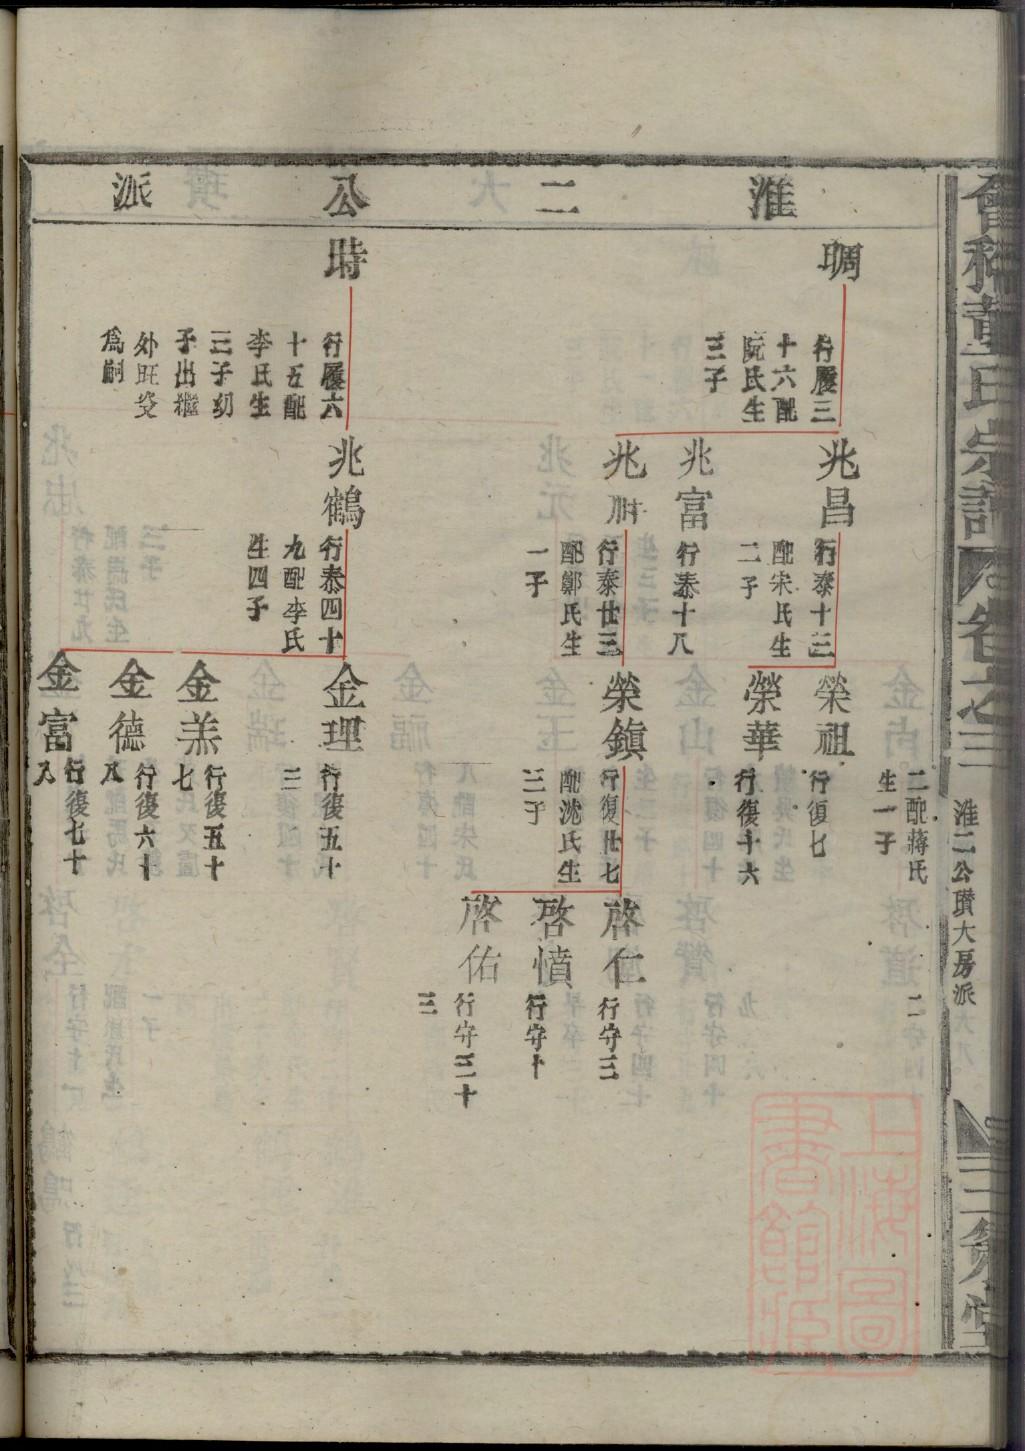 淮二公派
二配蔣氏
生一子
二
啁
行履三
十六配
阮氏生
三子
兆昌
行泰十三
配宋氏生
二子
榮祖
行復七
榮華
行復十六
兆富
行泰十八
兆
行泰廿三
配鄭氏生
一子
榮鎮
行復廿七
配沈氏生
三子
啓仁
行守三
啓憤
行守十
啓佑
行守二十
三
時
行履六
十五配
李氏生
三子幼
子出繼
外旺姿
爲嗣
兆鶴
行泰四十
九配李氏
生四子
金理
行復五十
三
金羔
行復五十
七
金德
行復六十
八
金富
行復七十
八
董氏宗譜
卷
之三
淮二公瓚大房派
三策堂
上海圖
書館藏